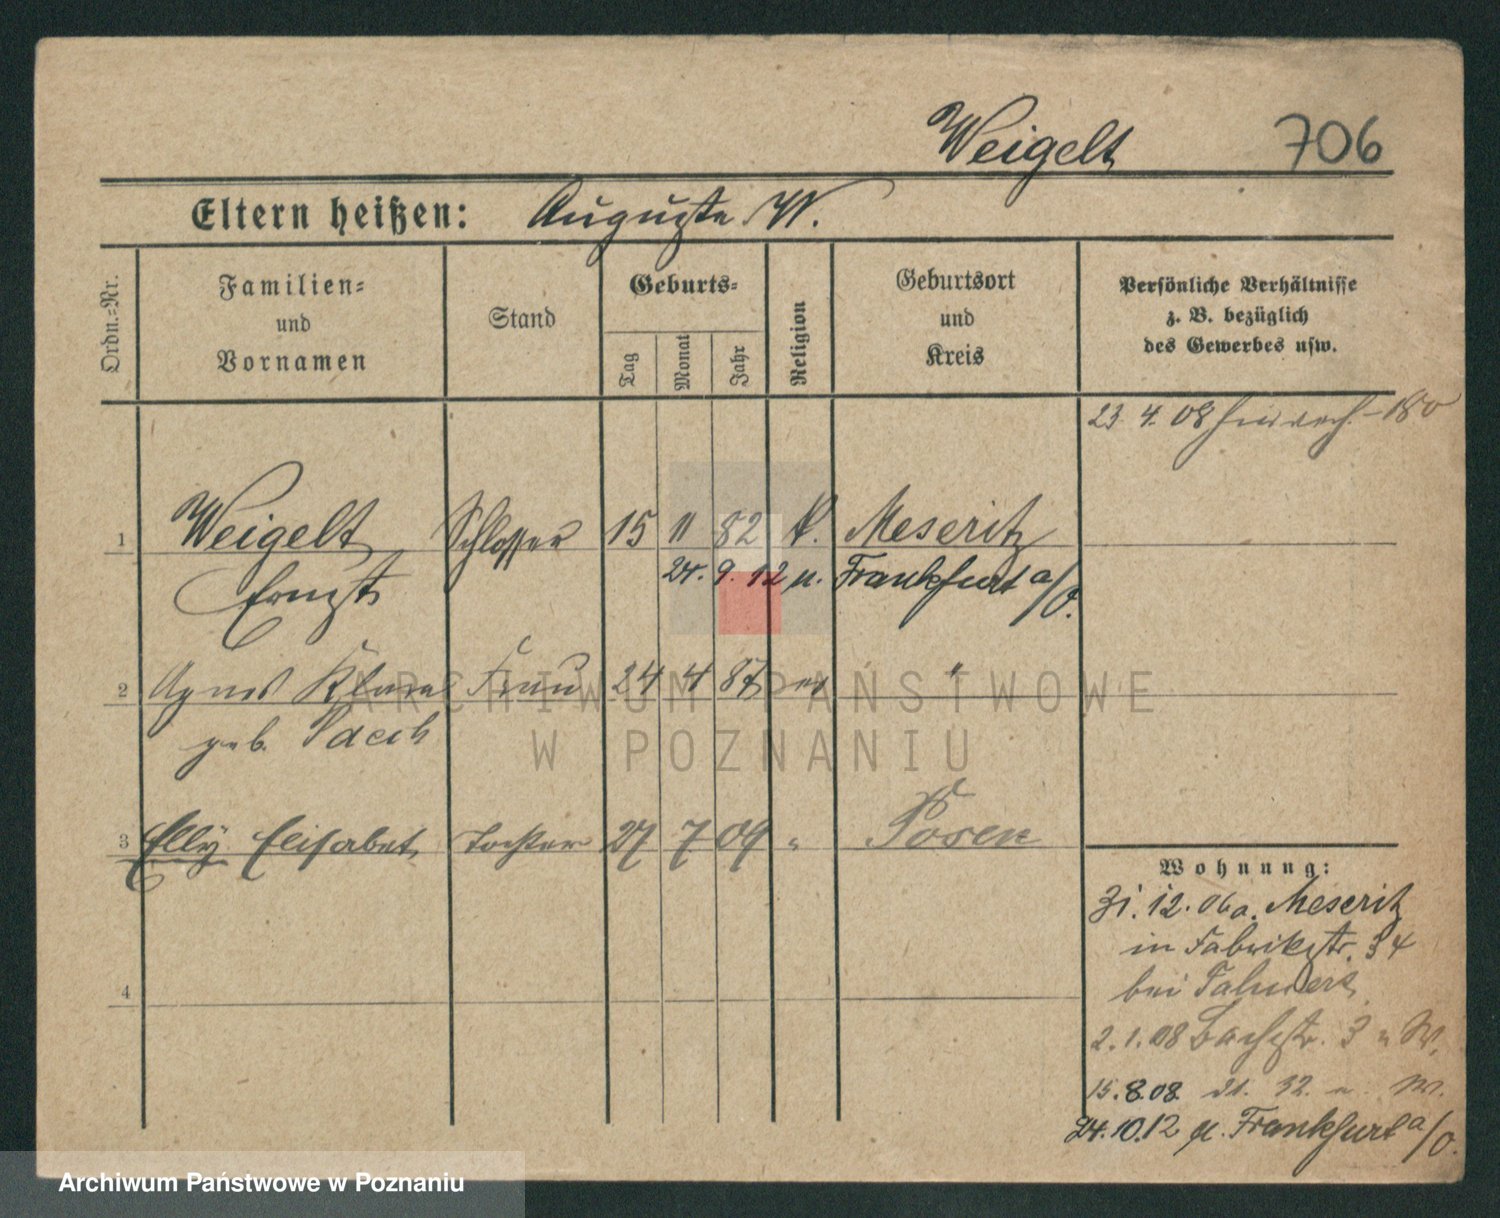 Weigelt 706
Eltern heißen: Auguste W.
Ordn.=Nr.
Familien=
und
Vornamen
Stand
Geburts=
Tag
Monat
Jahr
Religion
Geburtsort
und
Kreis
Persönliche Verhältnisse
z. B. bezüglich
des Gewerbes usw.
23. 4. 08
1 Weigelt Schlosser 15 11 82 k. Meseritz
Ernst 24. 9. 12 n. Frankfurt a/O.
2 Agnes Klara Frau 24 4 87 ev "
geb. Pach
3 Elly Elisabet Tochter 27 7 09 " Posen
4
Wohnung:
31. 12. 06 a. Meseritz
in Fabrikstr. 34
bei
2. 1. 08 Bachstr. 3 b. W.
15. 8. 08 21. 32. W.
24. 10. 12 n. Frankfurt a/O.
ARCHIWUM PAŃSTWOWE
W POZNANIU
Archiwum Państwowe w Poznaniu